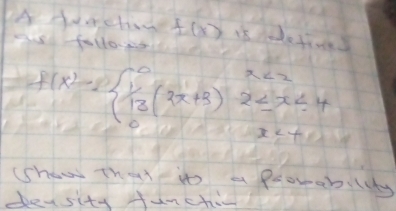 A function f(x) is defined
as follows
f(x) = { 0 x < 2
1/18 (2x+3) 2 ≤ x ≤ 4
0 x < 4
Show That it a Probability
density function